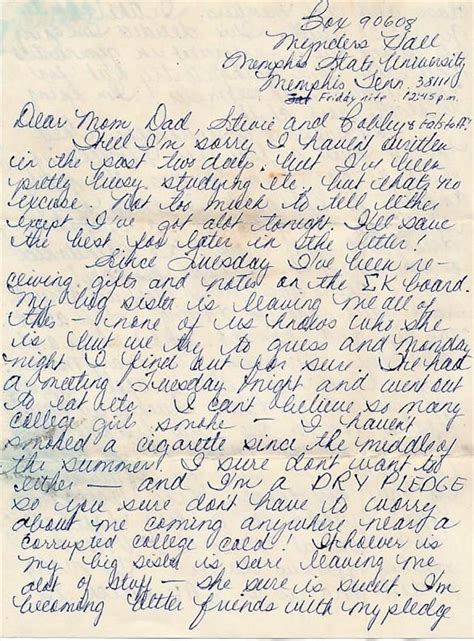 Box 90608
Mynders Hall
Memphis State University
Memphis Tenn, 38111
Friday nite 12:45 p.m.
Dear Mom, Dad, Stevie and Bobby &
Heel I'm sorry I haven't written
in the past two days. but I've been
pretty busy studying etc, but thats no
excuse. Not too much to tell either
except I've got alot tonight I'll save
the best for later in the letter!
Since Tuesday I've been re-
ceiving gifts and notes on the ΣK board.
My big sister is leaving me all of
this — none of us knows who she
is but we try to guess and Monday
night I find out for sure. We had
a meeting Tuesday night and went out
to eat etc. I can't believe so many
college girls smoke — I haven't
smoked a cigarette since the middle of
the summer. I sure don't want to
either — and I'm a DRY PLEDGE
so you sure don't have to worry
about me coming anywhere near a
corrupted college coed! Whoever is
my big sister is sure leaving me
alot of stuff — she sure is sweet. I'm
becoming better friends with my pledge